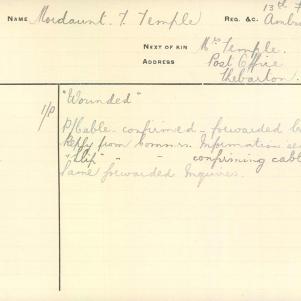 NAME Mordaunt. T. Temple REG. &C. 13th F
Ambul
NEXT OF KIN Mrs Temple.
ADDRESS Post Office
Thebarton.
"Wounded"
P/Cable. confirmed - forwarded
Reply from Commrs. Information
"Slip" " " confirming cabl
Same forwarded Inquires.